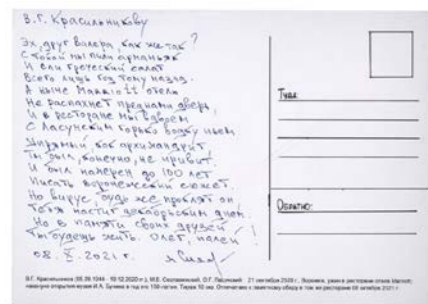 В.Г. Красильникову
Эх, друг Валера, как же так?
С тобой мы пили арманьяк
И ели греческий салат
Всего лишь год тому назад.
А ныне Марriott отель
Не распахнет пред нами дверь,
И в ресторане мы вдвоём
С Ласунским горько водку пьём
как архимандрит,
Ты был, конечно, не привит!
И был намерен до 100 лет
Писать воронежский сюжет.
Но вирус, будь же проклят он
Тебя настиг декабрьским днём.
Но в памяти своих друзей
Ты будешь жить. Олег, налей!
08.X.2021 г.
Туда:
Обратно:
В.Г. Красильников (05.09.1944 - 10.12.2020 гг.), О.Г. Ласунский 21 сентября 2020 г., Воронеж, ужин в ресторане отеля Marriott,
накануне открытия музея И.А. Бунина в год его 150-летия. Тираж 10 экз. Отпечатано к памятному обеду в том же ресторане 08 октября 2021 г.